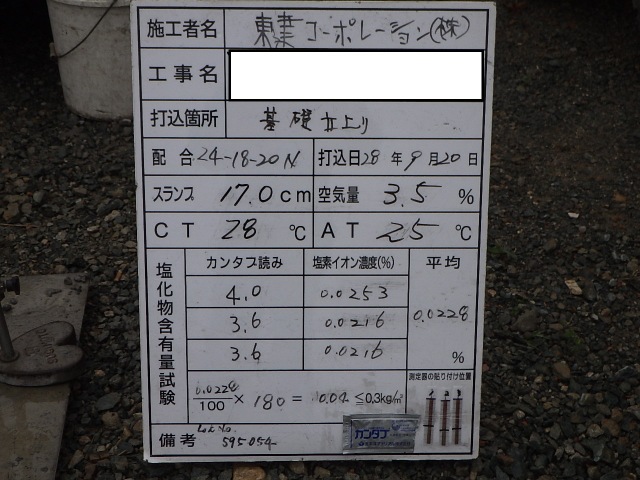 施工者名 東業コーポレーション(株)
工事名
打込箇所 基礎立上り
配合 24-18-20N 打込日 28年9月20日
スランプ 17.0cm 空気量 3.5%
CT 28℃ AT 25℃
塩化物含有量試験
カンタブ読み 塩素イオン濃度(%) 平均
4.0 0.0253
3.6 0.0216 0.0228
3.6 0.0216 %
測定器の貼り付け位置
0.0228/100 × 180 = 0.04 ≦0.3kg/㎥
備考 Lot No. 595054
カンタブ